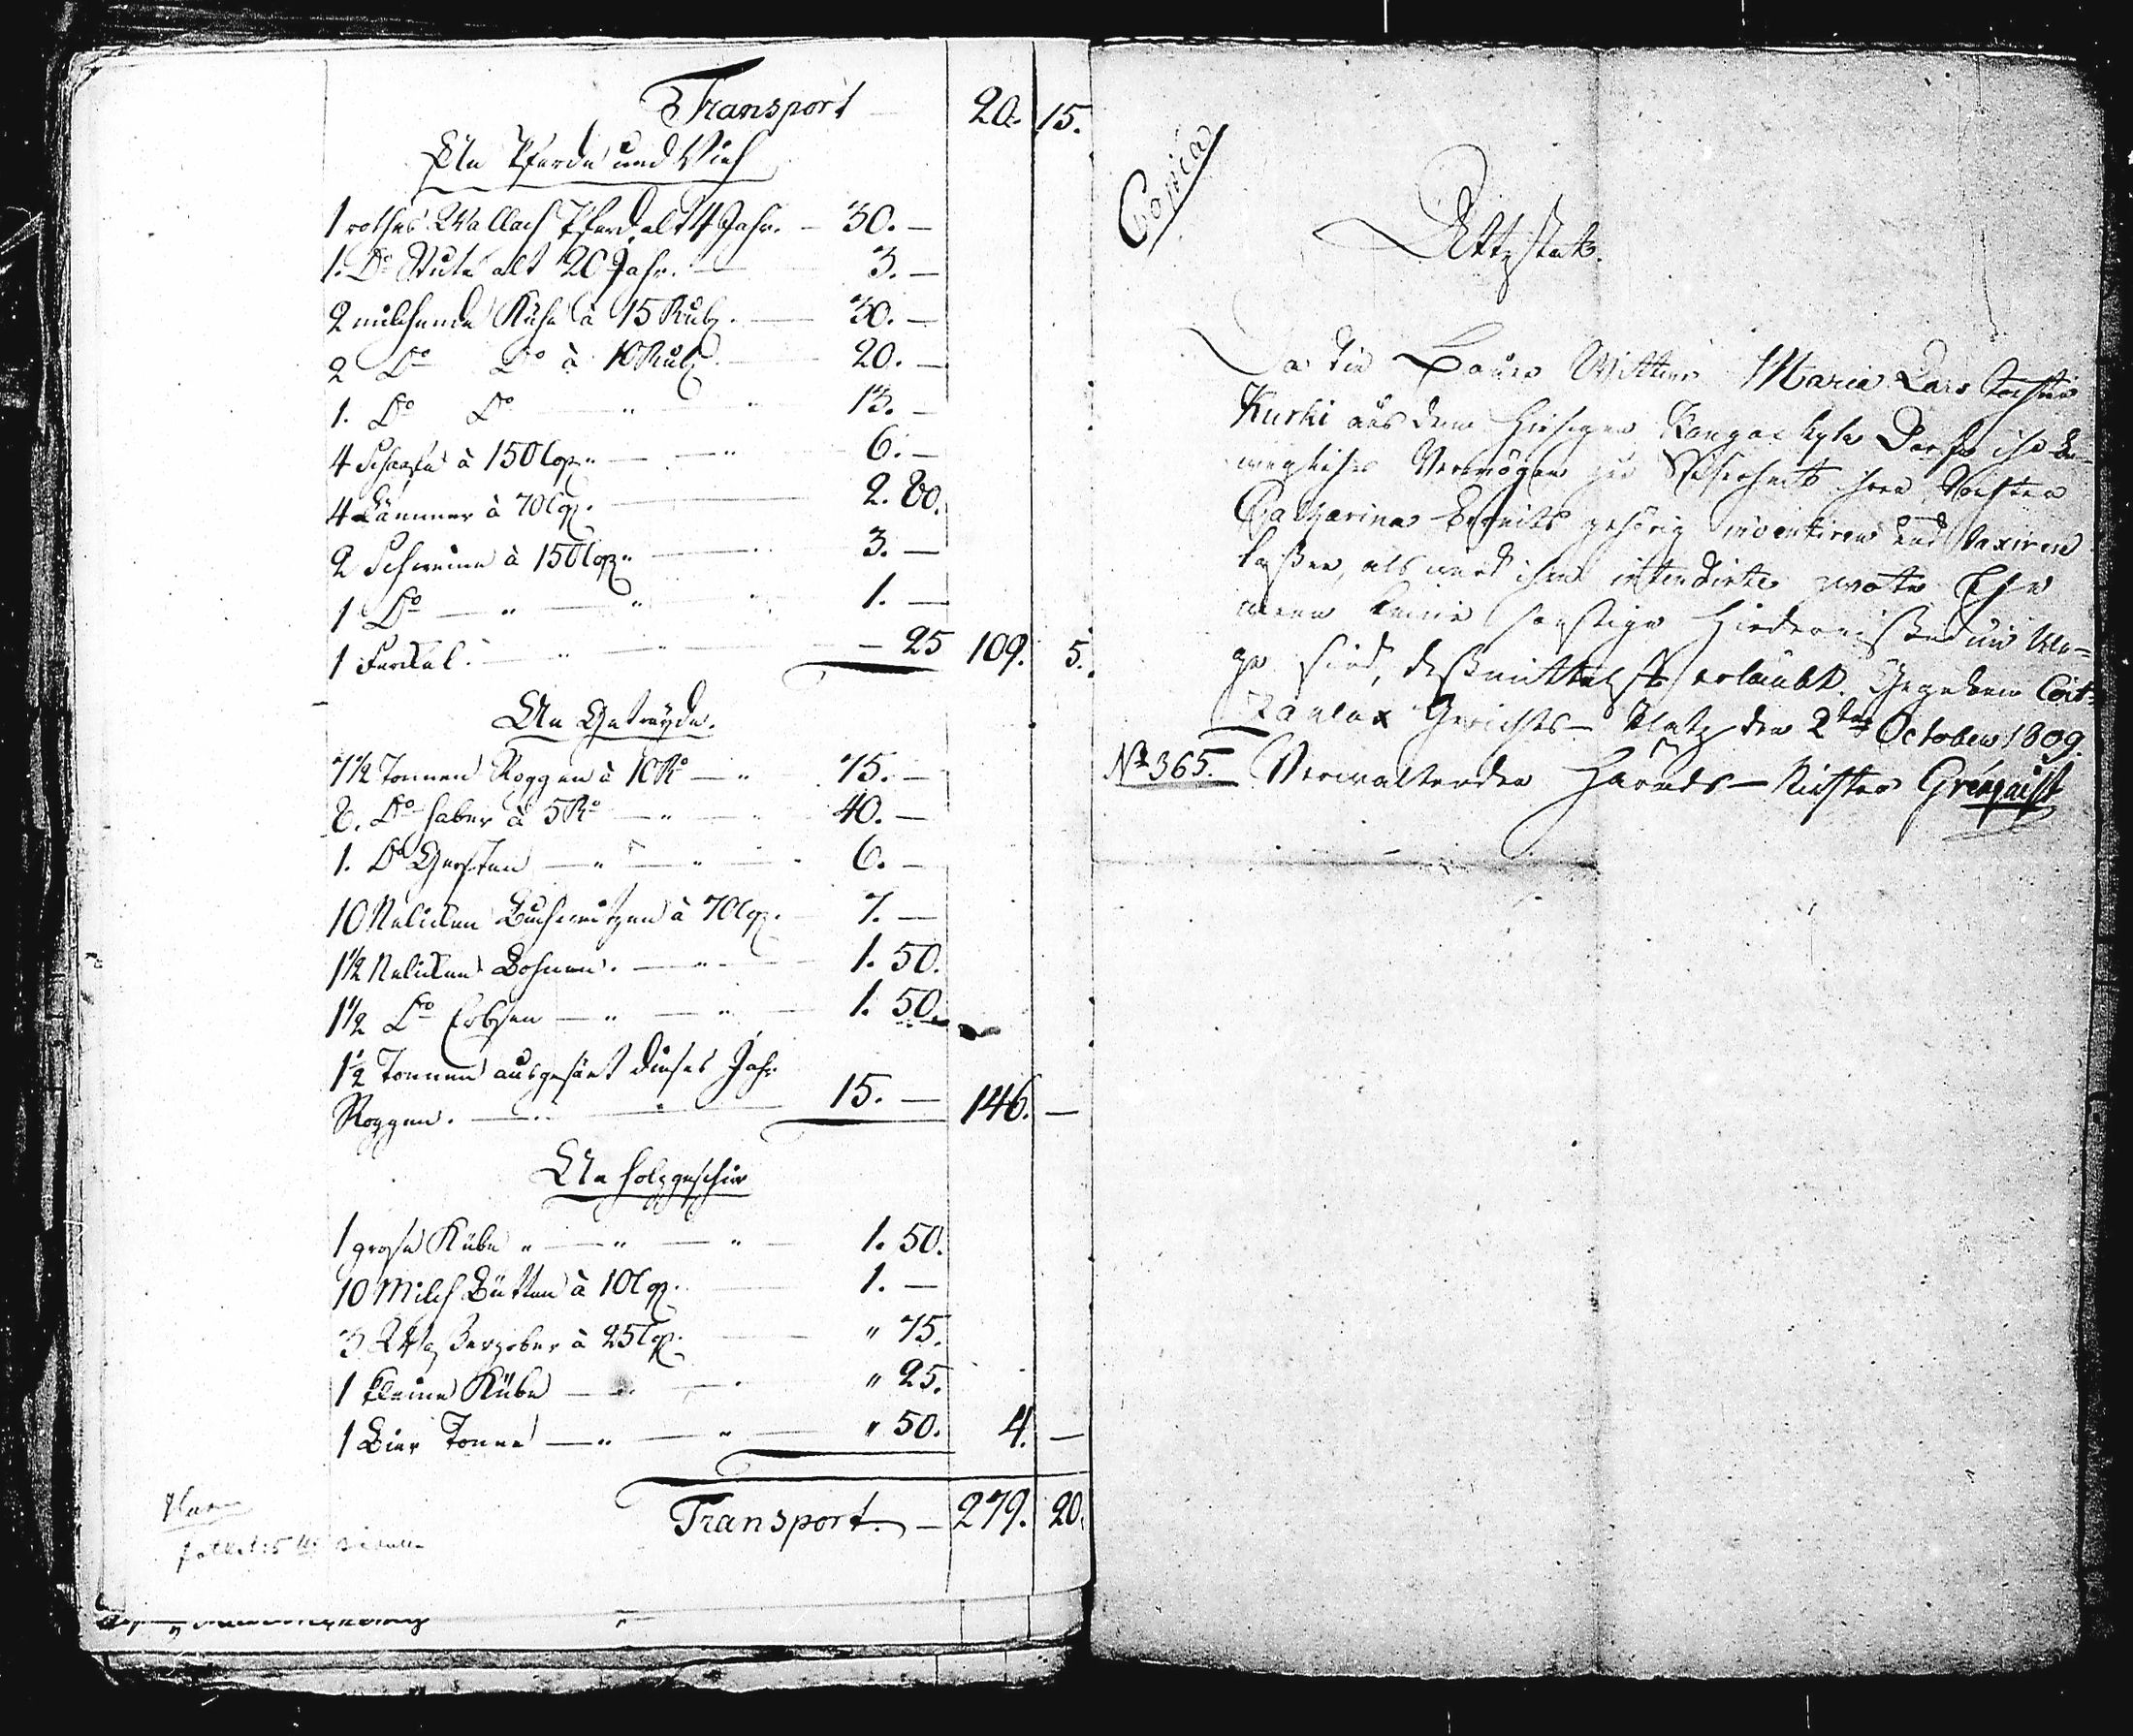 Transport 20. 15.
An Pferde und Vieh
1 rothes Wallach Pferd alt 4 Jahr. — 30. —
1. Do Stute alt 20 Jahr. — 3. —
2 milchende Kühe à 15 Rub. — 30. —
2 Do Do à 10 Rub. — 20. —
1. Do Do — " — " 13. —
4 Schaafe à 150 Cop. — " — 6. —
4 Lämmer à 70 Cop. — 2. 80.
2 Schweine à 150 Cop. — 3. —
1 Do — " — " 1. —
1 Ferckel. — " — " — 25 109. 5.
An Getreyde.
7 1/2 Tonnen Roggen à 10 Ro — " 75. —
8. Do Haber à 5 Ro — " — 40. —
1. Do Gersten — " — " — 6. —
10 Kalicken Buchweitzen à 70 Cop. 7. —
1 1/2 Kalicken Bohnen. — " — 1. 50.
1 1/2 Do Erbsen — " — " — 1. 50.
1 1/2 Tonnen ausgesäet dieses Jahr
Roggen. — " — 15. — 146. —
An Holzgeschir
1 große Kübe " — " — " — 1. 50.
10 Milch Bütten à 10 Cop. — 1. —
3 Waßerzober à 25 Cop. — " 75.
1 kleine Kübe — " — " 25.
1 Bier Tonne — " — " — " 50. 4. —
Transport. — 279. 20.
Copia
Attestat.
Da die Bauer Wittwe Maria Lars Tochter
Kurki aus dem hiesigen Dorfe ihr be-
wegliches Vermögen zur Sicherheit ihrer Tochter
Catharina bereits gehörig inventiren und taxiren
laßen, als wird ihr intendirte zwote Ehe
wenn keine sonstige Hinderniße im We=
ge sind, desmittelst erlaubt. Gegeben
Gerichts-Platz den 2ten October 1809.
No 365. Verwaltender Härads-Richter Grénquist